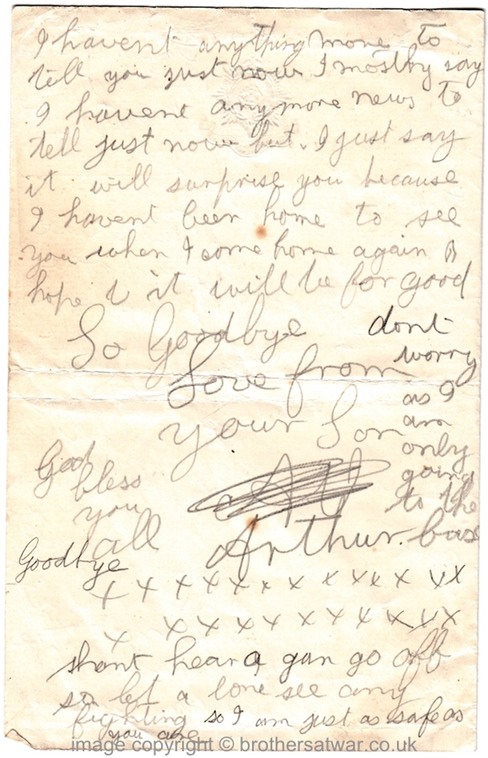 I havent anything more to
tell you just now I mostly say
I havent any more news to
tell just now but. I just say
it will surprise you because
I havent been home to see
you when I come home again
hope it will be for good
So Goodbye
Love from
your Son
Arthur.
dont
worry
as I
am
only
going
to the
base
God
bless
you
all
Goodbye
x x x x x x x x x x x x x
x x x x x x x x x x x x
shant hear a gun go off
so let a lone see any
fighting so I am just as safe as
you are
image copyright © brothersatwar.co.uk